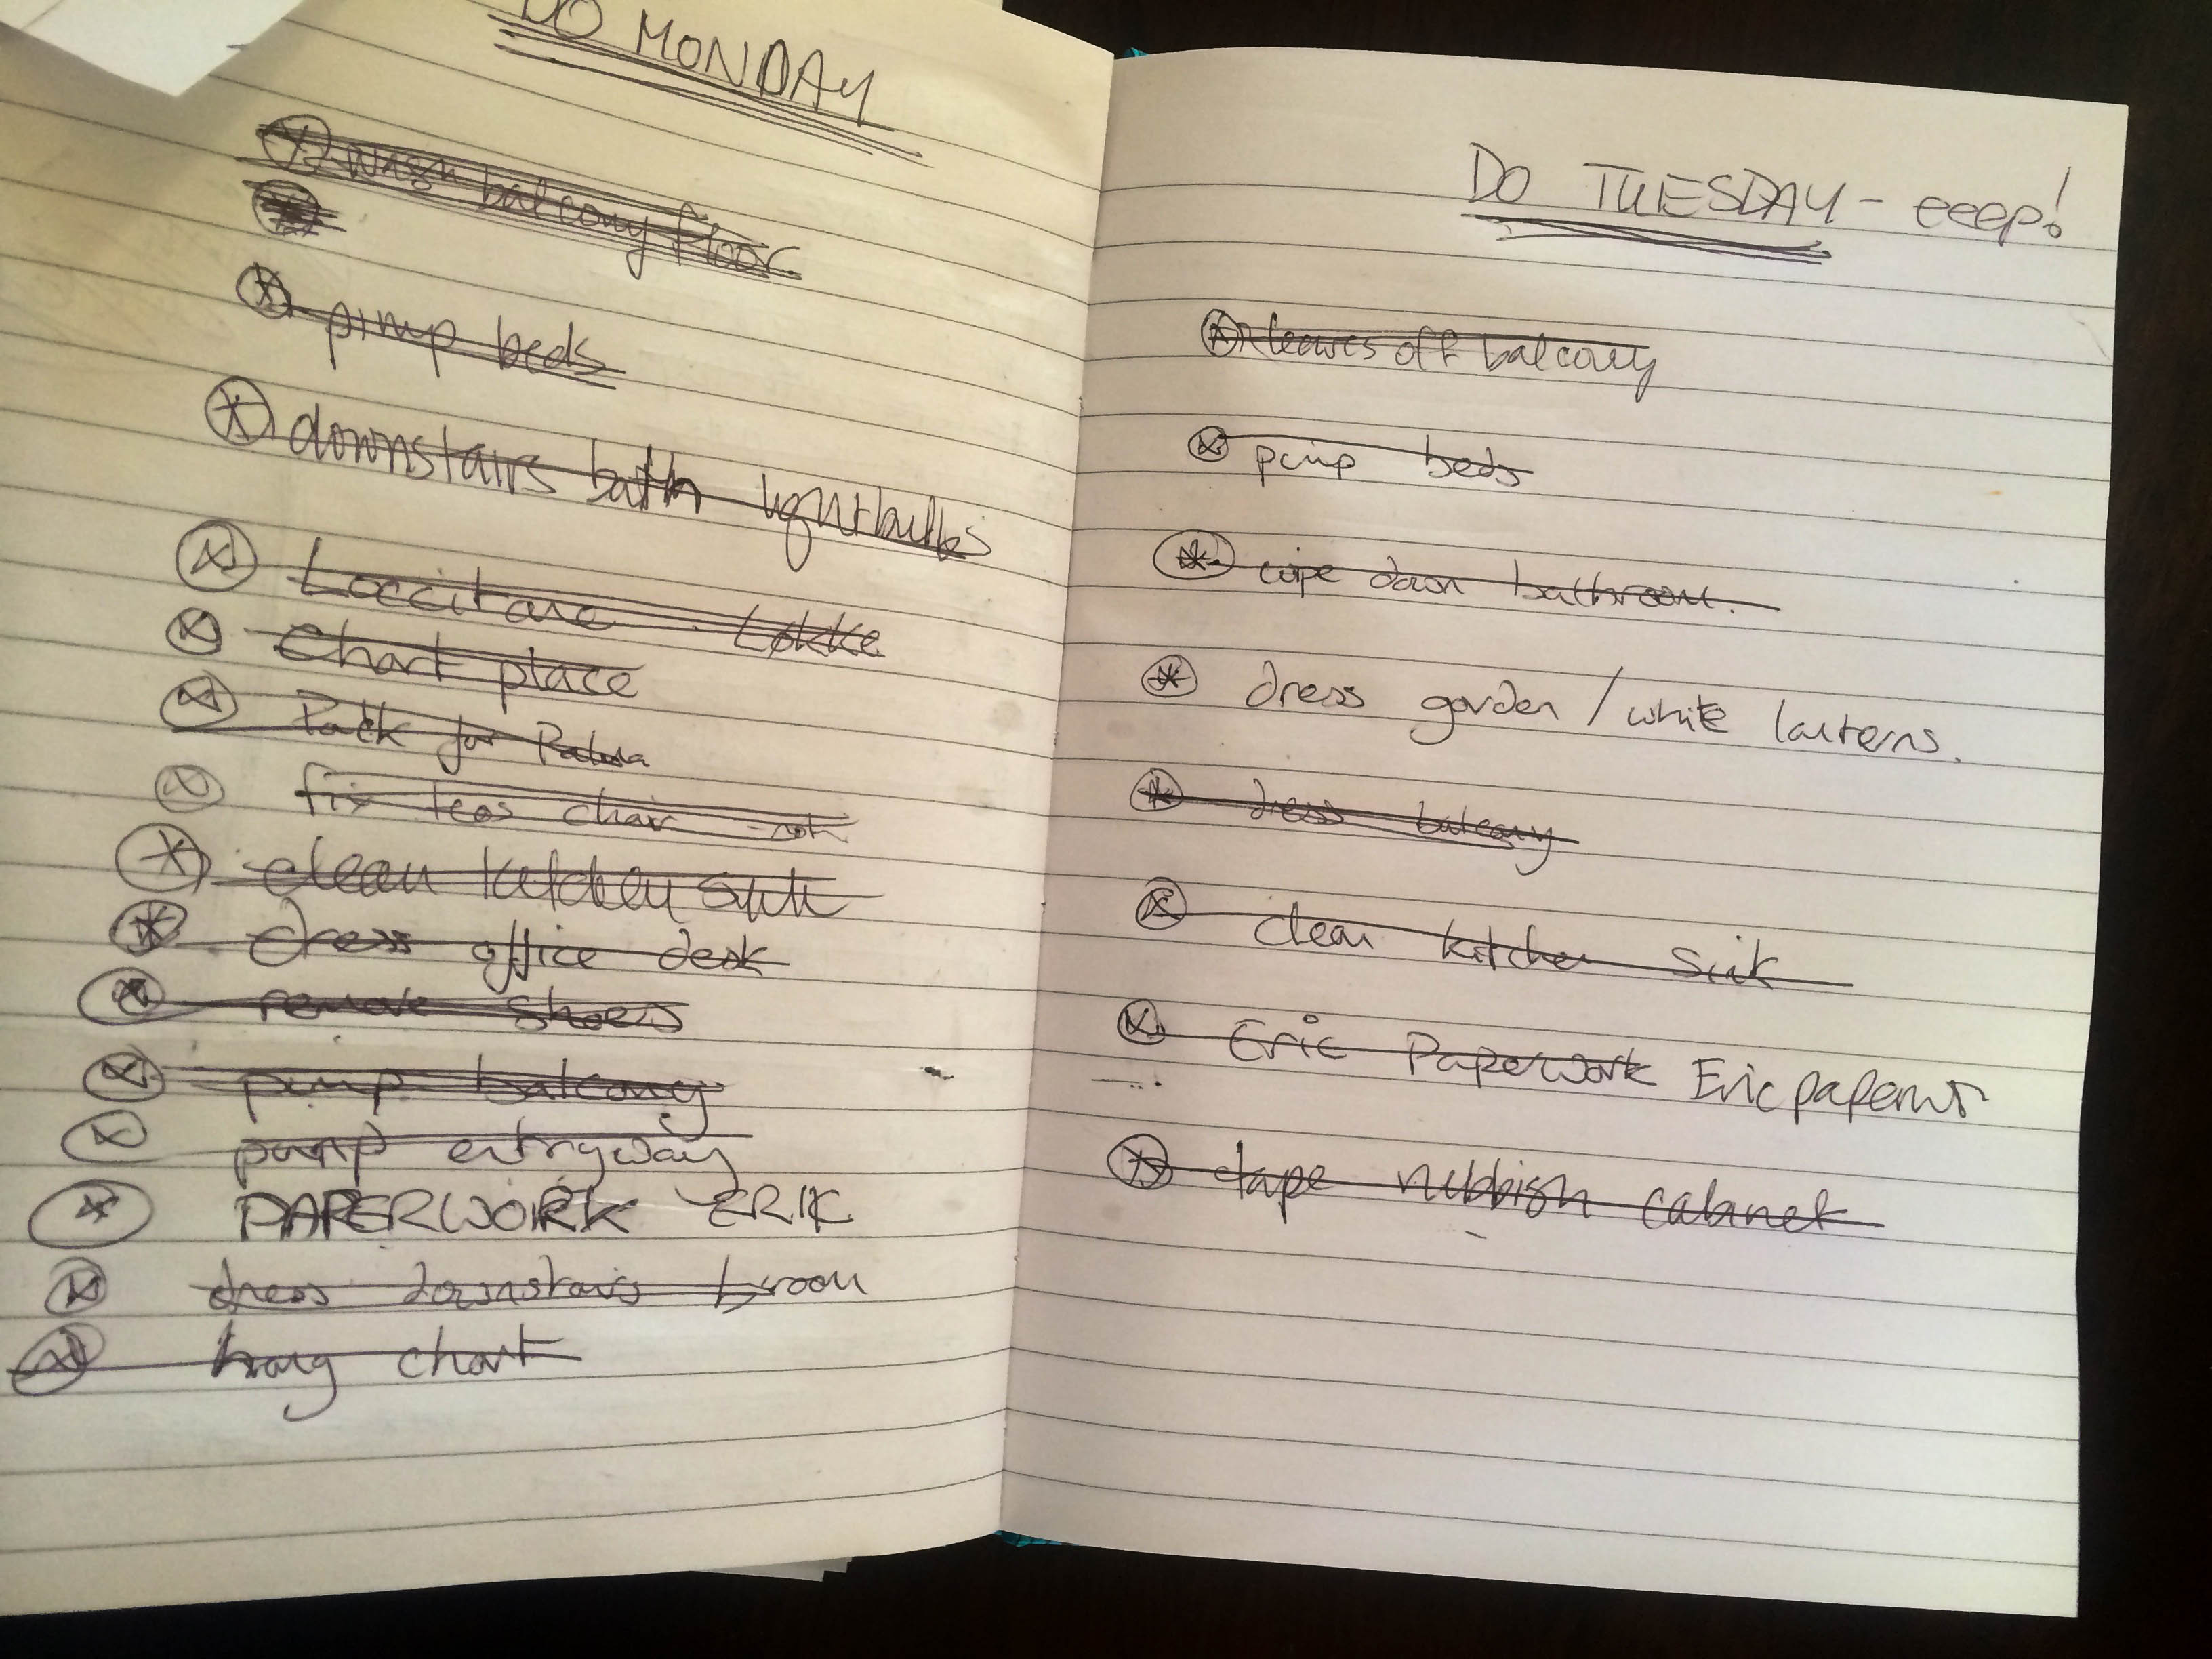 DO MONDAY
wash balcony floor.
pimp beds
downstairs bath lightbulbs
Loccitane Løkke
Chart place
Pack for
fix teas chair - not
clean kitchen sink
dress office desk
remove shoes
pimp balcony
pimp entryway
PAPERWORK ERIK
dress downstairs broom
hang chart
DO TUESDAY - eeep!
leaves off balcony
pimp beds
wipe down bathroom.
dress garden / white lanterns.
dress balcony
clean kitchen sink
Eric Paperwork Eric
tape rubbish cabinet